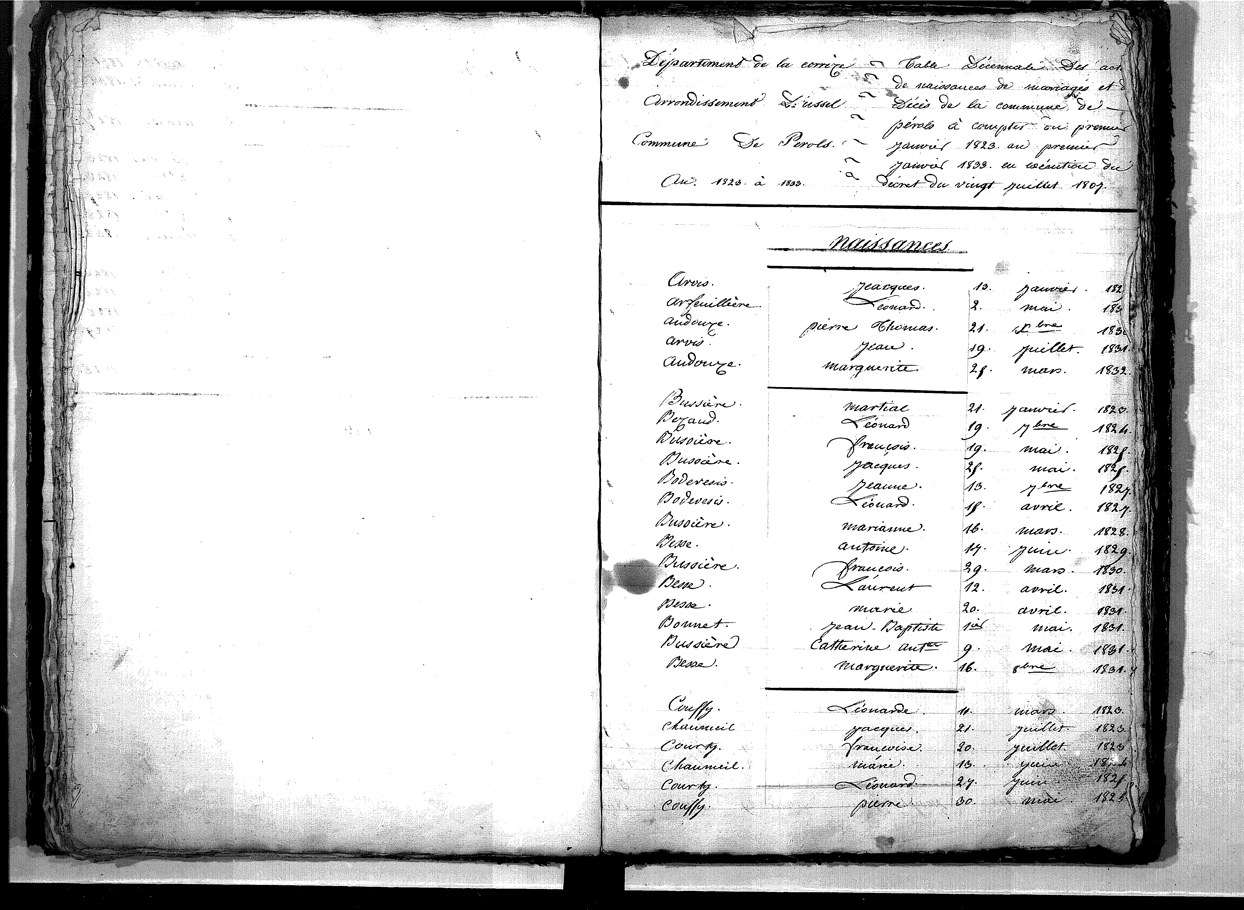 Département de la corrèze Table Décennale Des act
de naissances de mariages et d
Arrondissement D'ussel Décès de la commune de
pérols à compter du premier
Commune De Perols. janvier 1823 au premier
janvier 1833 en exécution du
An. 1823 à 1833. décret du vingt juillet 1807.
naissances
Arvis. Jeacques. 13. janvier. 182
Arfeuillière Léonard. 2. mai. 183
Audouze. pierre Thomas. 21. xbre 183
arvis. Jean. 19. juillet. 1831.
Audouze. marguerite 28. mars. 1832.
Bussière. martial 21. janvier. 1823.
Bezaud. Léonard 19. 7bre 1824.
Bussière. françois. 19. mai. 1825.
Bussière. Jacques. 28. mai. 1825.
Bodevesis. Jeanne. 13. 7bre 1827.
Bodevesis. Léonard. 18. avril. 1827.
Bussière. marianne. 16. mars. 1828.
Besse. antoine. 14. juin. 1829.
Bussière. françois. 29. mars. 1830.
Besse. Laurent 12. avril. 1831.
Besse. marie 20. avril. 1831.
Bonnet. Jean-Baptiste 1er mai. 1831.
Bussière Catherine antte 9. mai. 1831.
Besse. marguerite. 16. 8bre 1831.
Couffy. Léonarde. 11. mars. 1823.
chaumeil Jacques. 21. juillet. 1823.
Courty. françoise 20. juillet. 1823
Chaumeil. marie. 13. juin. 1824
Courty. Léonard. 27. juin 1825.
Couffy. pierre 30. mai. 1825.